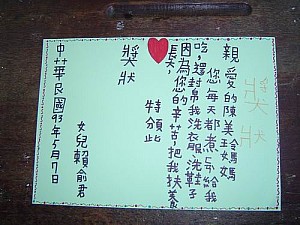 獎狀
親愛的陳美玲媽媽
您每天都煮飯給我
吃,還幫我洗衣服洗鞋子
因為您的辛苦,把我扶養
長大,
特頒此
獎狀
女兒賴俞君
中華民國93年5月7日